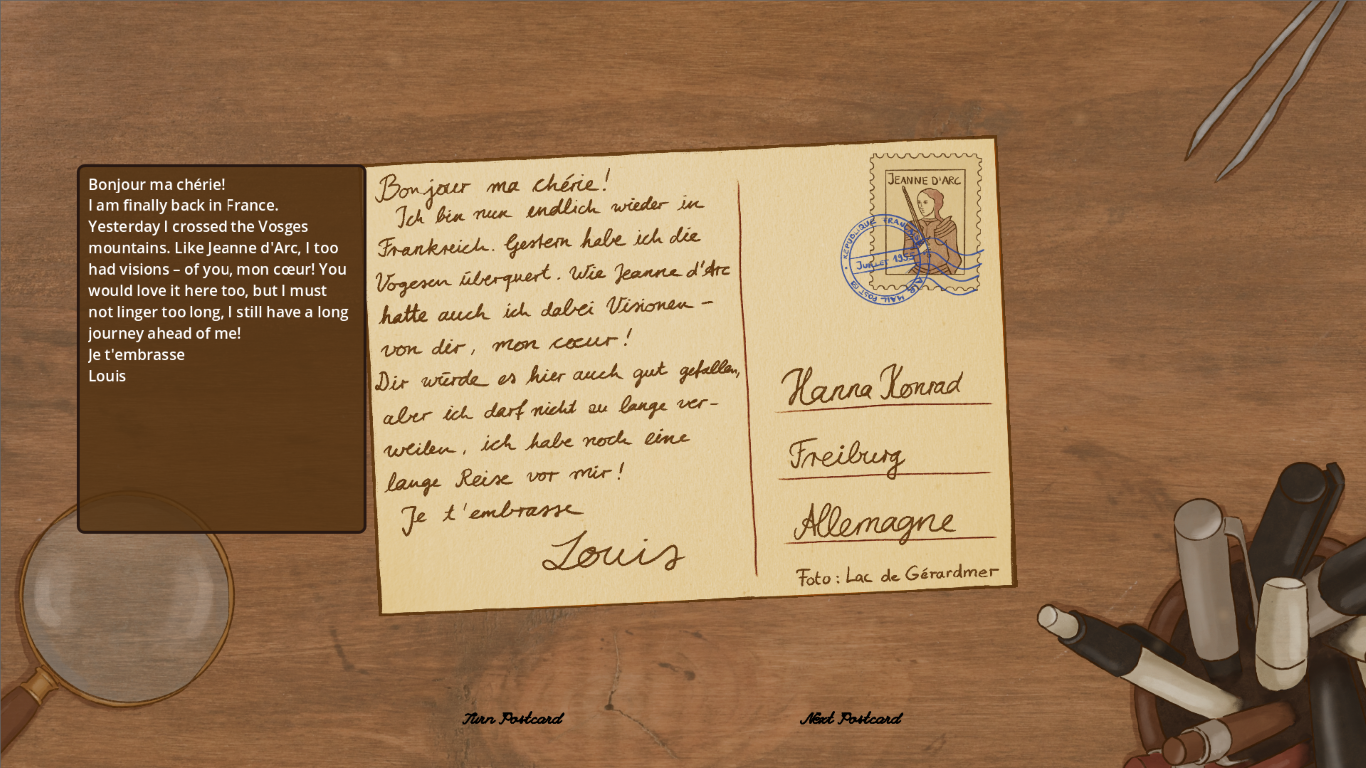 Bonjour ma chérie!
I am finally back in France.
Yesterday I crossed the Vosges
mountains. Like Jeanne d'Arc, I too
had visions – of you, mon cœur! You
would love it here too, but I must
not linger too long, I still have a long
journey ahead of me!
Je t'embrasse
Louis
Bonjour ma chérie!
Ich bin nun endlich wieder in
Frankreich. Gestern habe ich die
Vogesen überquert. Wie Jeanne d'Arc
hatte auch ich dabei Visionen –
von dir, mon cœur!
Dir würde es hier auch gut gefallen,
aber ich darf nicht zu lange ver-
weilen, ich habe noch eine
lange Reise vor mir!
Je t'embrasse
Louis
JEANNE D'ARC
RÉPUBLIQUE FRANÇAISE
JUILLET
AIR MAIL POST
Hanna Konrad
Freiburg
Allemagne
Foto: Lac de Gérardmer
Turn Postcard
Next Postcard